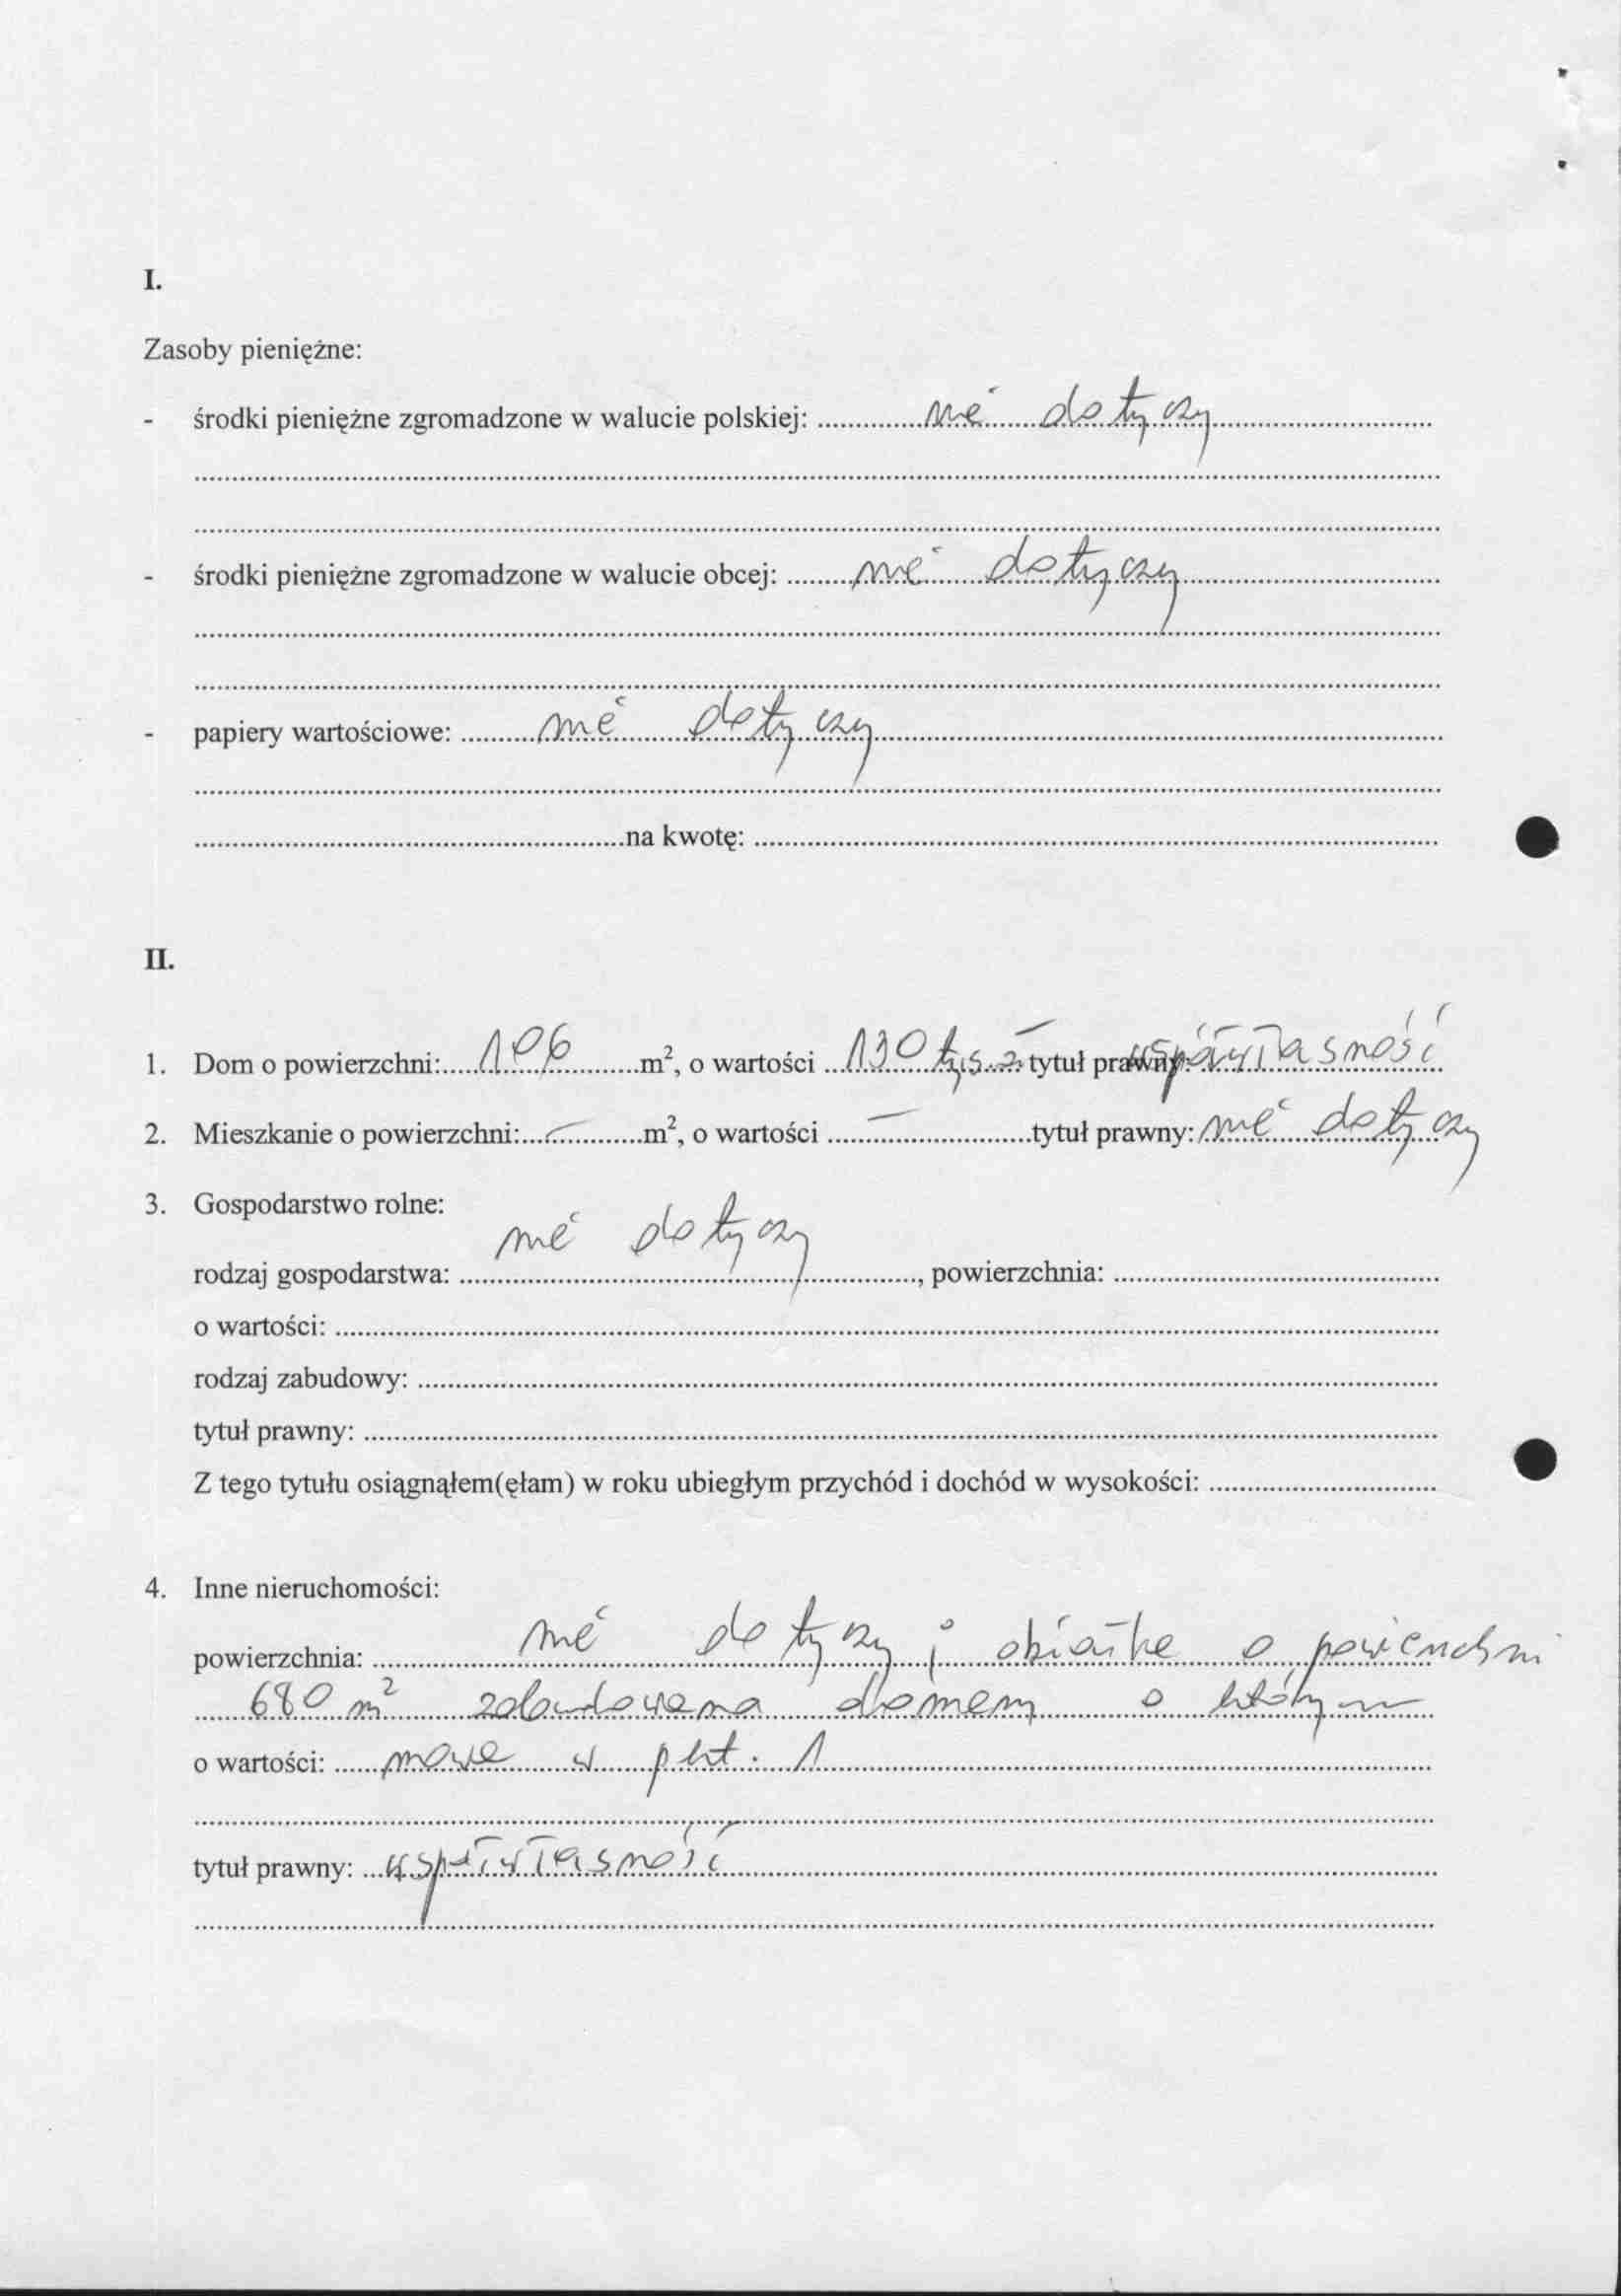 I.
Zasoby pieniężne:
- środki pieniężne zgromadzone w walucie polskiej: nie dotyczy
- środki pieniężne zgromadzone w walucie obcej: nie dotyczy
- papiery wartościowe: nie dotyczy
na kwotę:
II.
1. Dom o powierzchni: 106 m², o wartości 130 tys. zł tytuł prawny: współwłasność
2. Mieszkanie o powierzchni: — m², o wartości — tytuł prawny: nie dotyczy
3. Gospodarstwo rolne:
rodzaj gospodarstwa: nie dotyczy, powierzchnia:
o wartości:
rodzaj zabudowy:
tytuł prawny:
Z tego tytułu osiągnąłem(ęłam) w roku ubiegłym przychód i dochód w wysokości:
4. Inne nieruchomości:
powierzchnia: nie dotyczy; działka o powierzchni
680 m² zabudowana domem o którym
o wartości: mowa w pkt. 1
tytuł prawny: współwłasność